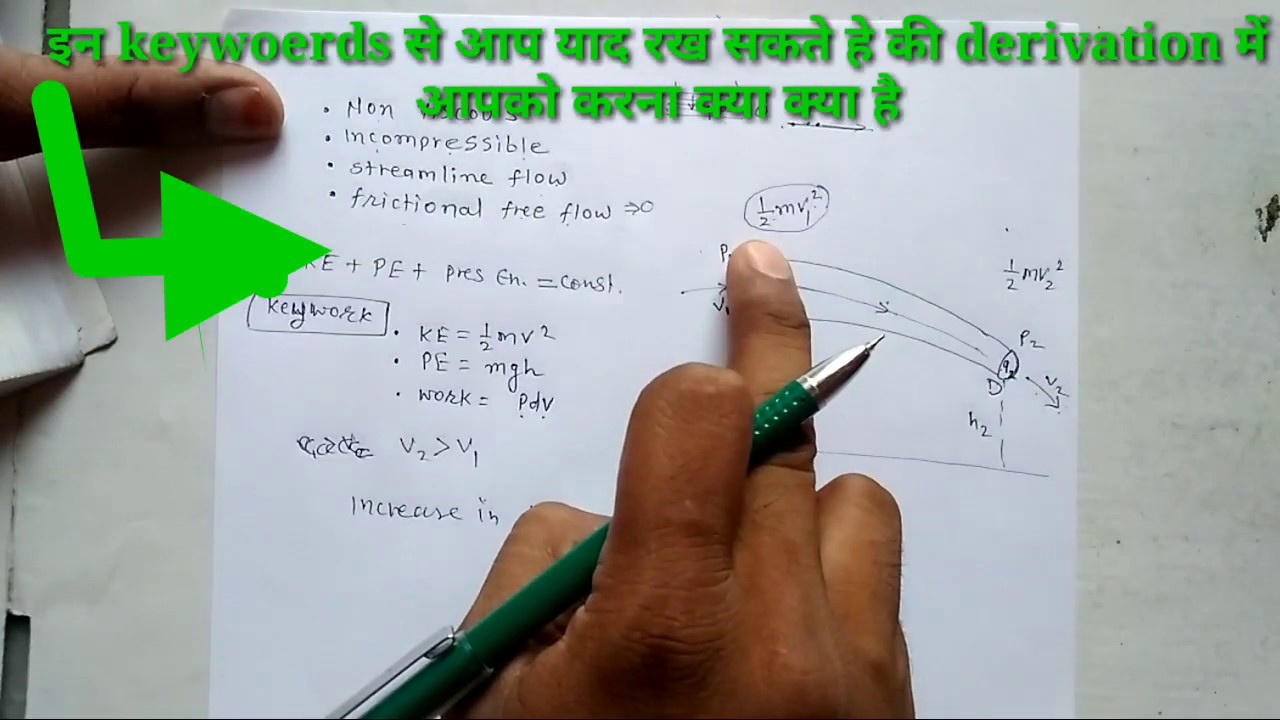 इन keywoerds से आप याद रख सकते हे की derivation में
आपको करना क्या क्या है
• Non
• Incompressible
• streamline flow
• frictional free flow ⇒0
KE + PE + pres En. = const.
keywork
• KE = ½mv²
• PE = mgh
• work = PdV
V₂ > V₁
Increase in
½mv₁²
½mv₂²
P₂
D
V₂
h₂